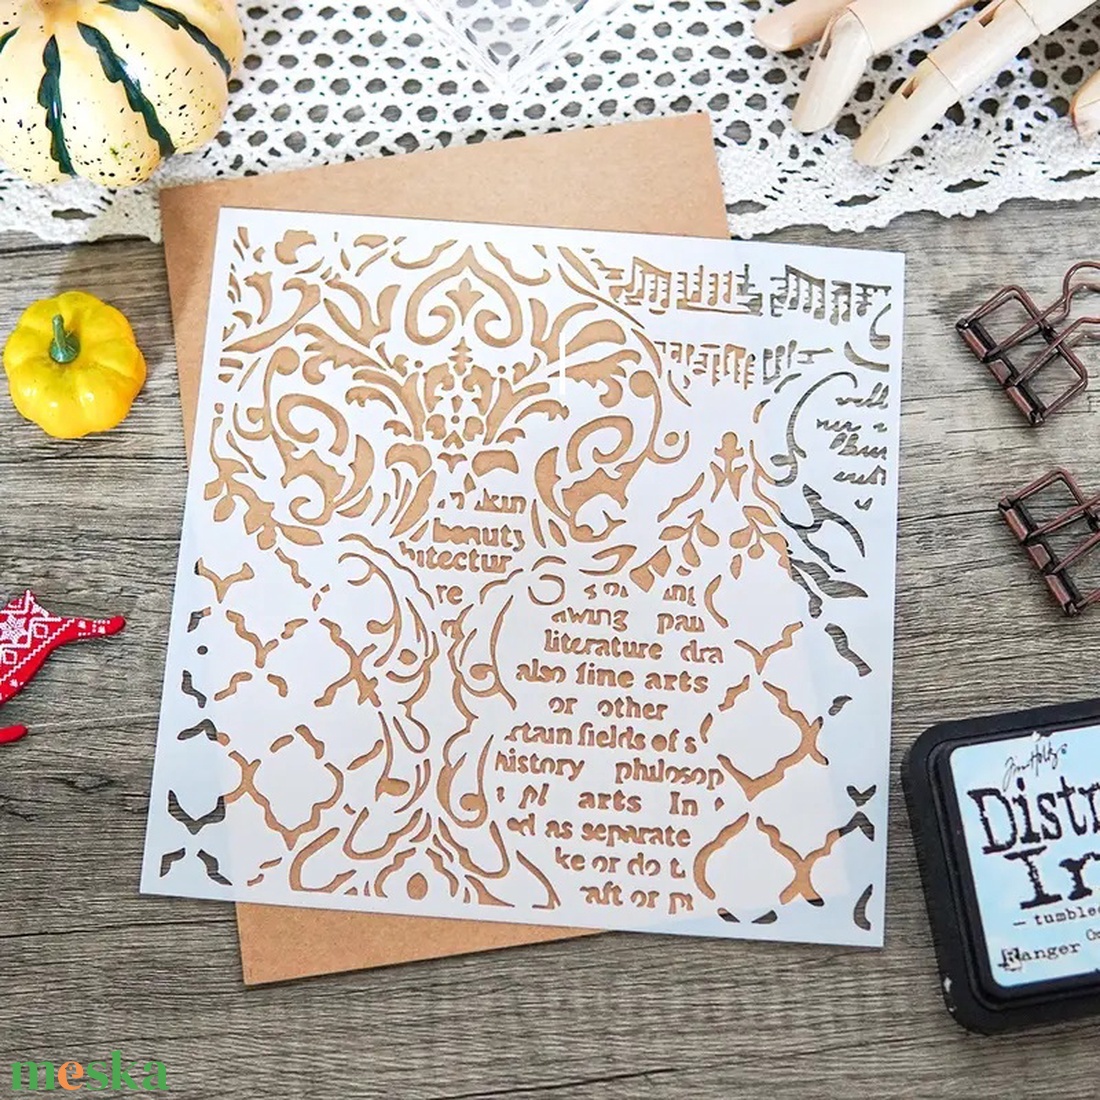 kin
beauty
hitectur
re
awing pau
literature dra
also fine arts
or other
rtain fields of s
history philosop
pl arts In
ed as separate
ke or do t
aft or pr
Tim Holtz®
Distr
In
- tumble
Ranger
meska